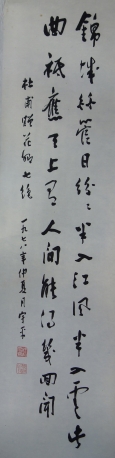 錦城絲管日紛紛半入江風半入雲此
曲祇應天上有人間能得幾回聞
杜甫贈花卿七絕
一九七八年仲夏月